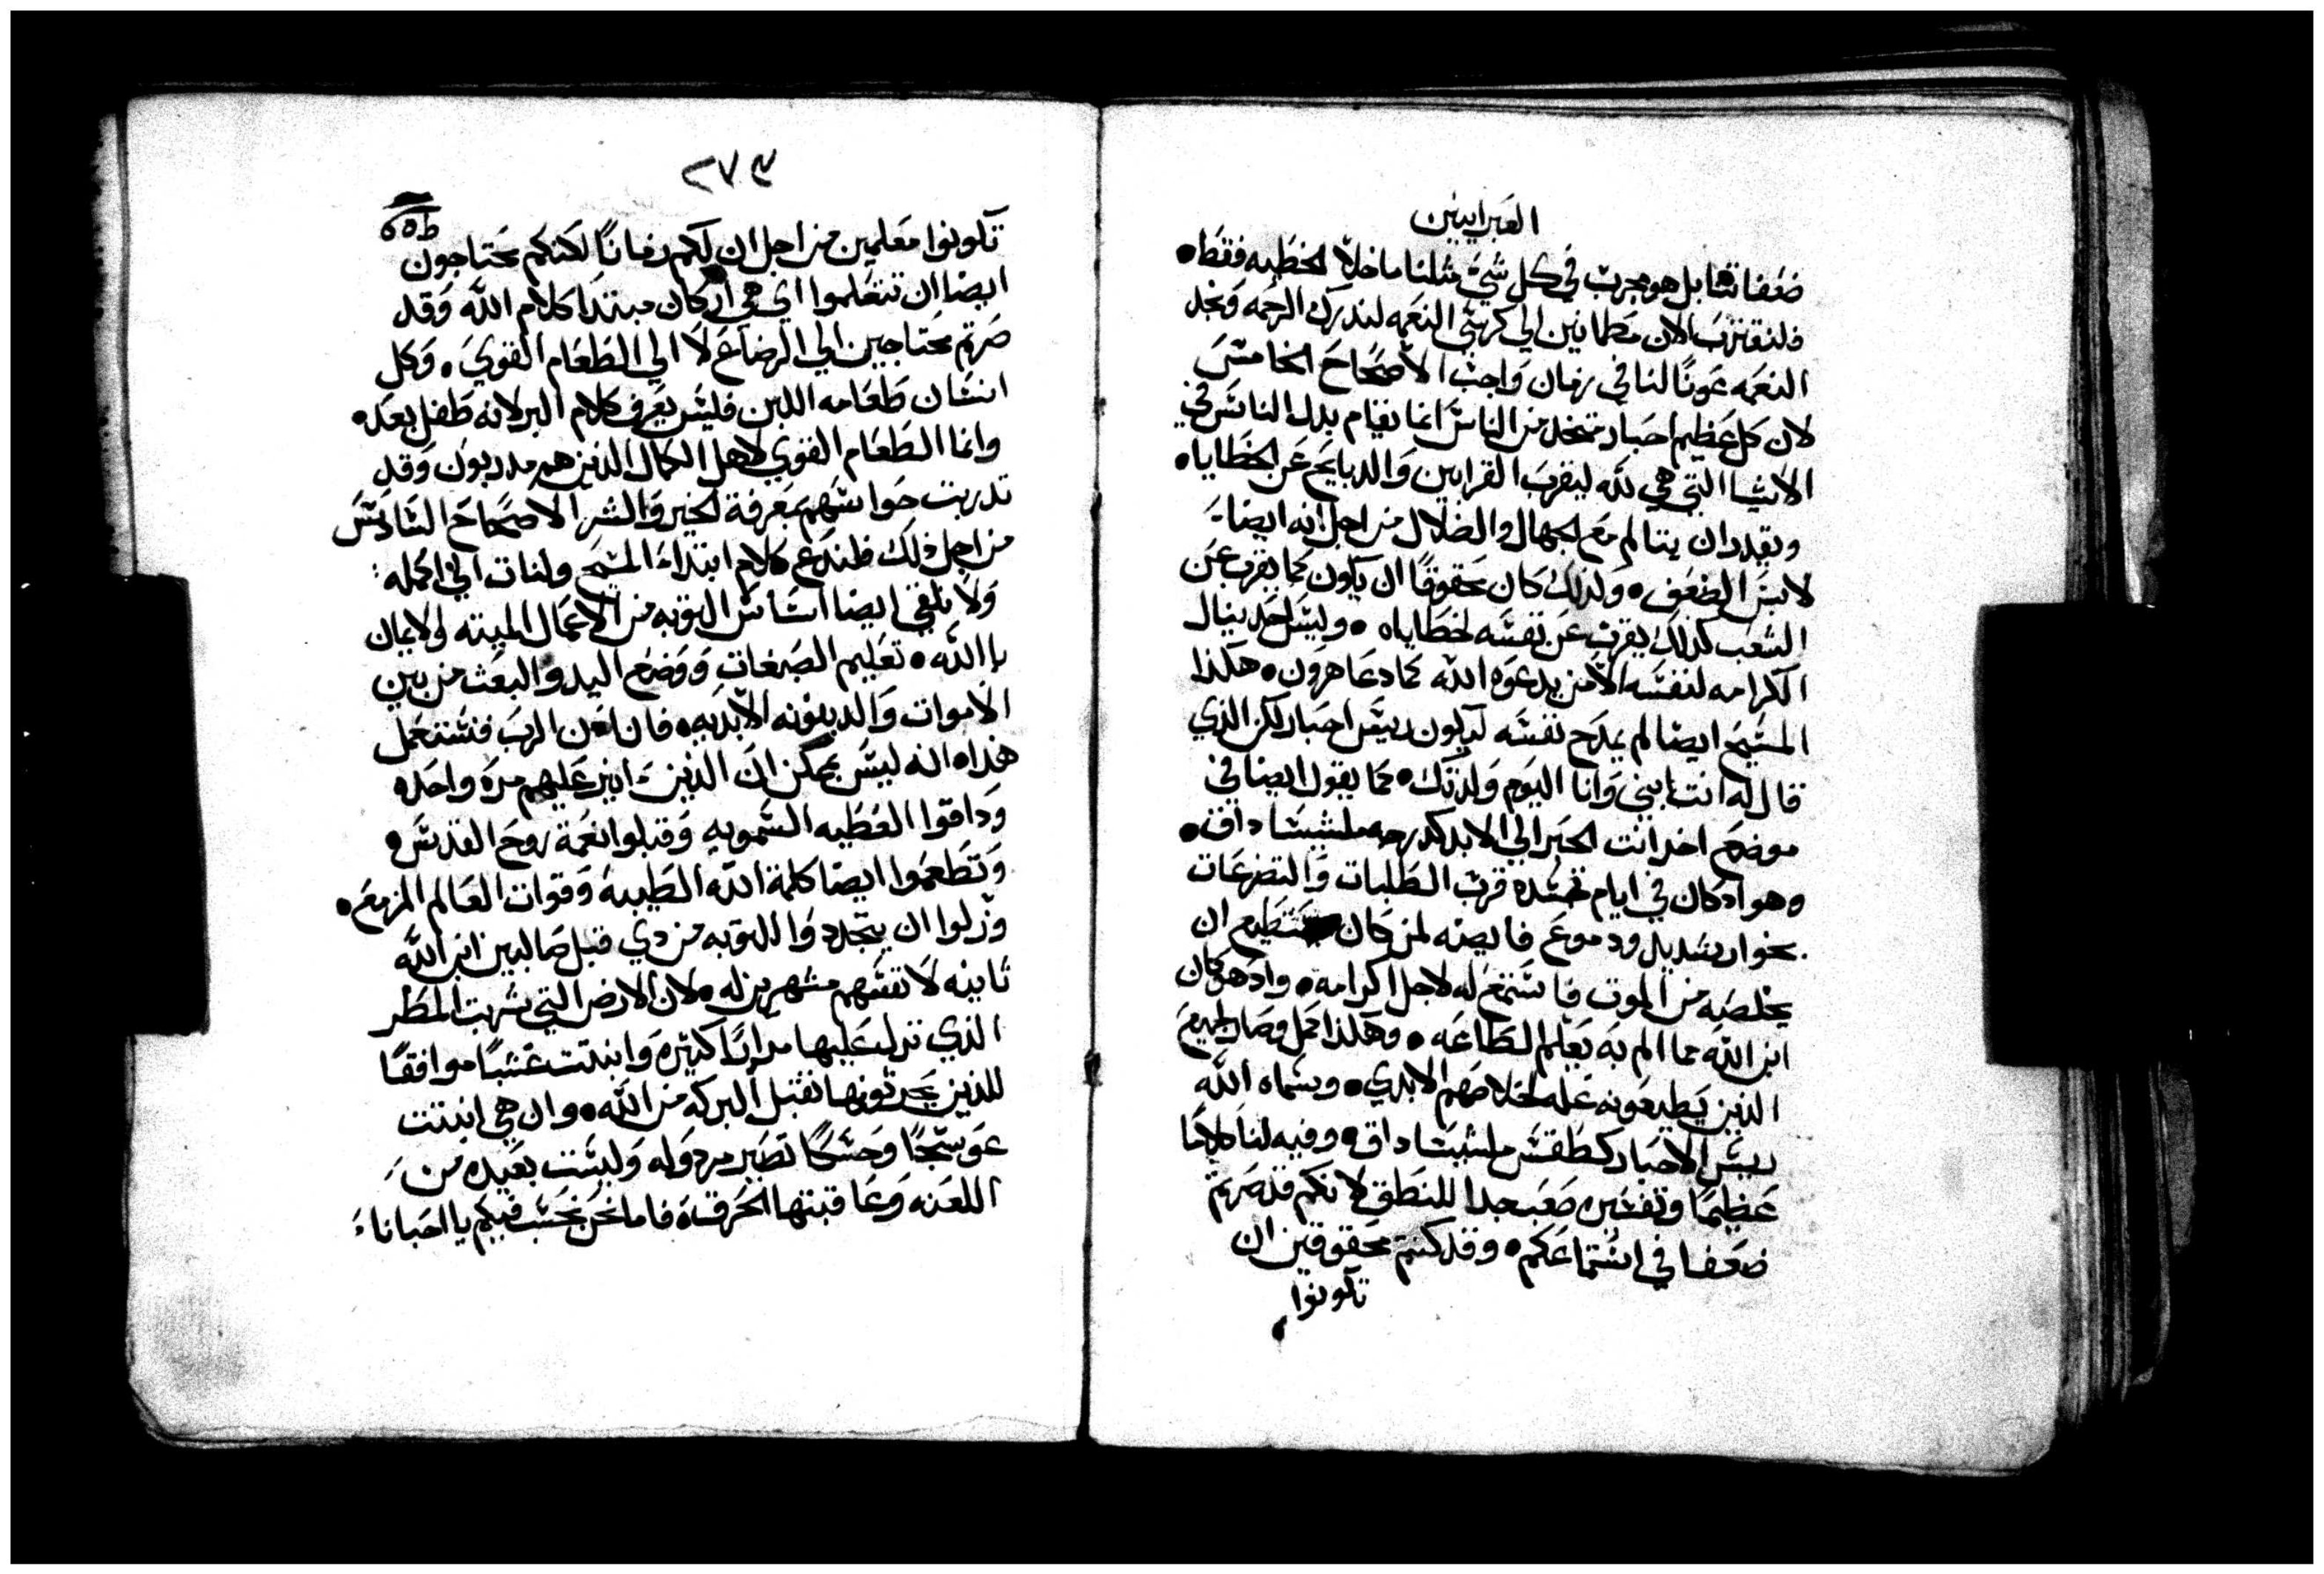 العبرانيين
ضعفاتنا بل هو مجرب في كل شي مثلنا ما خلا الخطيه فقط •
فلنقترب الان مطمانين الي كرسي النعمه لندرك الرحمه ونجد
النعمه عونًا لنا في زمان واجب الاصحاح الخامس
لان كل عظيم احبار متخد من الناس انما يقام بدل الناس في
الاشيا التي هي لله ليقرب القرابين والدبايح عن الخطايا •
ويقدر ان يتالم مع الجهال والضلال من اجل انه ايضا
لابس الضعف • ولذلك كان محقوقًا ان يكون كما يقرب عن
الشعب كذلك يقرب عن نفسه لخطاياه • وليس احد ينال
الكرامه لنفسه الا من يدعوه الله كما دعا هرون • هكذا
المسيح ايضا لم يمدح نفسه ليكون رييس احبار لكن الذي
قال له انت ابني وانا اليوم ولدتك • كما يقول ايضا في
موضع اخر انت الحبر الي الابد كدرجه ملشيساداق •
وهو اد كان في ايام تجسده قرب الطلبات والتضرعات
بخوار شديد ودموع فايضه لمن كان يستطيع ان
يخلصه من الموت فاستمع له لاجل اكرامه • واد هو كان
ابن الله مما الم به تعلم الطاعه • وهكذا كمل وصار لجميع
الذين يطيعونه عله لخلاصهم الابدي • وسماه الله
رييس الاحبار كطقس ملشيساداق • وفيه لنا كلامًا
عظيمًا وتفسيره صعب جدا للنطق لانكم قد صرتم
ضعفا في استماعكم • وقد كنتم محقوقين ان
تكونوا
٢٧٩
تكونوا معلمين من اجل ان لكم زمانًا لكنكم محتاجون
ايضا ان تتعلموا اي هي اركان مبتدا كلام الله وقد
صرتم محتاجين الي الرضاع لا الي الطعام القوي • وكل
انسان طعامه اللبن فليس يعرف كلام البر لانه طفل بعد •
وانما الطعام القوي لاهل الكمال الذين هم مدربون وقد
تدربت حواسهم بمعرفة الخير والشر الاصحاح السادس
من اجل ذلك فلندع كلام ابتداء المسيح ولنات الي اكمله
ولا نلقي ايضا اساس التوبه من الاعمال الميته والايمان
باالله • تعليم الصبغات ووضع اليد والبعث من بين
الاموات والدينونه الابديه • فان ادن الرب فسنعمل
هذا • انه ليس يمكن ان الذين انير عليهم مره واحده
وداقوا العطيه السمويه وقبلوا نعمة روح القدس •
وتطعموا ايضا كلمة الله الطيبه وقوات العالم المزمع •
وزلوا ان يتجددوا للتوبه من دي قبل صالبين ابن الله
ثانيه لانفسهم مشهرين له • لان الارض التي شربت المطر
الذي نزل عليها مرارًا كثيره وانبتت عشبًا موافقًا
للذين يحرثونها تقبل البركه من الله • وان هي انبتت
عوسجًا وحسكًا تصير مردوله وليست بعيده من
اللعنه وعاقبتها الحرقه فاما نحن نحسب فيكم يا احبانا